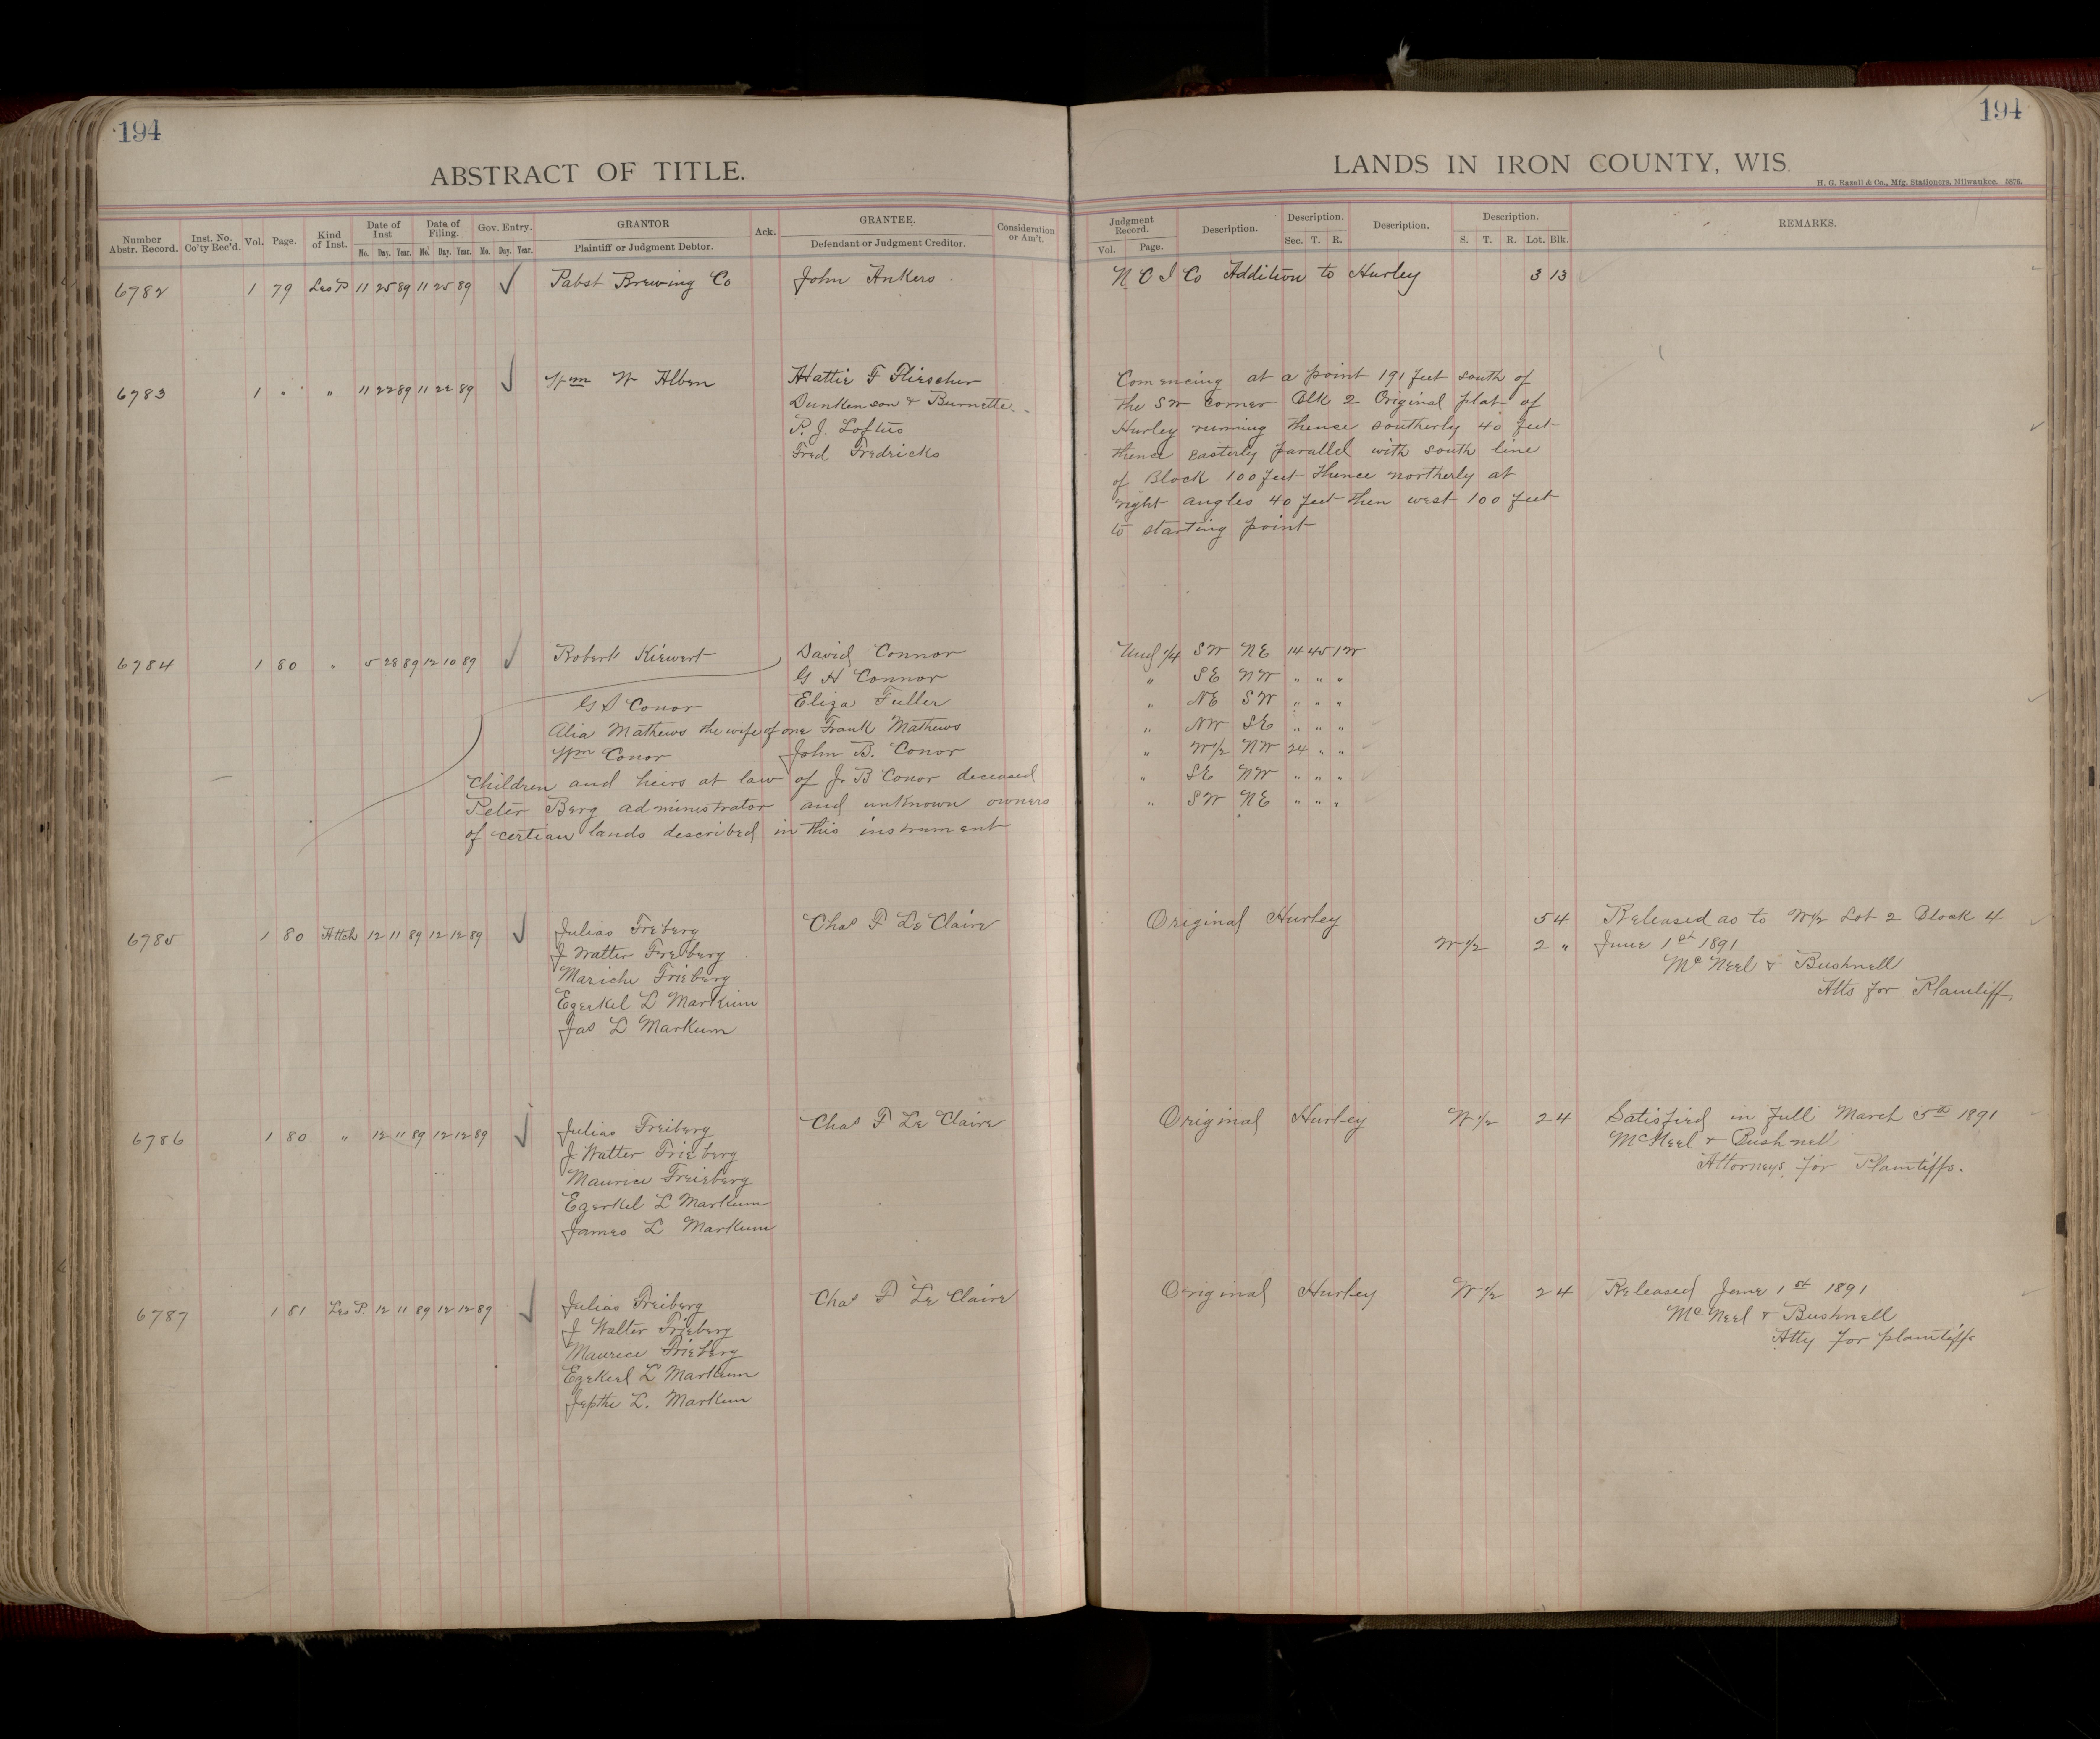 194
194
ABSTRACT OF TITLE.
LANDS IN IRON COUNTY, WIS.
H. G. Razall & Co., Mfg. Stationers, Milwaukee. 5876.
Number Abstr. Record. Inst. No. Co'ty Rec'd. Vol. Page. Kind of Inst. Date of Inst Mo. Day. Year. Date of Filing. Mo. Day. Year. Gov. Entry. Mo. Day. Year. GRANTOR Plaintiff or Judgment Debtor. Ack. GRANTEE. Defendant or Judgment Creditor. Consideration or Am't.
Judgment Record. Vol. Page. Description. Description. Sec. T. R. Description. Description. S. T. R. Lot. Blk. REMARKS.
6782 1 79 Les P 11 25 89 11 25 89 ✓ Pabst Brewing Co John Ankers N C I Co Addition to Hurley 3 13
6783 1 " " 11 22 89 11 22 89 ✓ Wm W Alben Hattie F Flieschur
Dunkenson & Burnette
P. J. Loftus
Fred Fredricks
Comencing at a point 191 feet south of
the SW corner Blk 2 Original plat of
Hurley running thence southerly 40 feet
thence easterly parallel with south line
of Block 100 feet thence northerly at
right angles 40 feet then west 100 feet
to starting point
6784 1 80 " 5 28 89 12 10 89 ✓ Robert Kiewert David Connor
G H Connor
G S Conor Eliza Fuller
Alia Mathews the wife of one Frank Mathews
Wm Conor John B. Conor
Children and heirs at law of J. B Conor deceased
Peter Berg administrator and unknown owners
of certian lands described in this instrument
SW NE 14 45 1W
" SE NW " " "
" NE SW " " "
" NW SE " " "
" W1/2 NW 24 " "
" SE NW " " "
" SW NE " " "
6785 1 80 Attch 12 11 89 12 12 89 ✓ Julias Freberg Chas F Le Claire Original Hurley 5 4 Released as to W1/2 Lot 2 Block 4
J Walter Freberg W 1/2 2 " June 1st 1891
Mariche Frieberg McNeel & Bushnell
Ezerkel L Markum Atts for Plantiff
Jas L Markum
6786 1 80 " 12 11 89 12 12 89 ✓ Julias Freiberg Chas F Le Claire Original Hurley W 1/2 2 4 Satisfied in full March 5th 1891
J Walter Frieberg McNeel & Bushnell
Maurice Freieberg Attorneys for Plantiffs.
Ezerkel L Markum
James L Markum
6787 1 81 Les P. 12 11 89 12 12 89 ✓ Julias Freiberg Chas F Le Claire Original Hurley W 1/2 2 4 Released June 1st 1891
J Walter Frieberg McNeel & Bushnell
Maurice Frieberg Atty for plantiffs
Ezekiel L Markum
Jepthe L. Markum